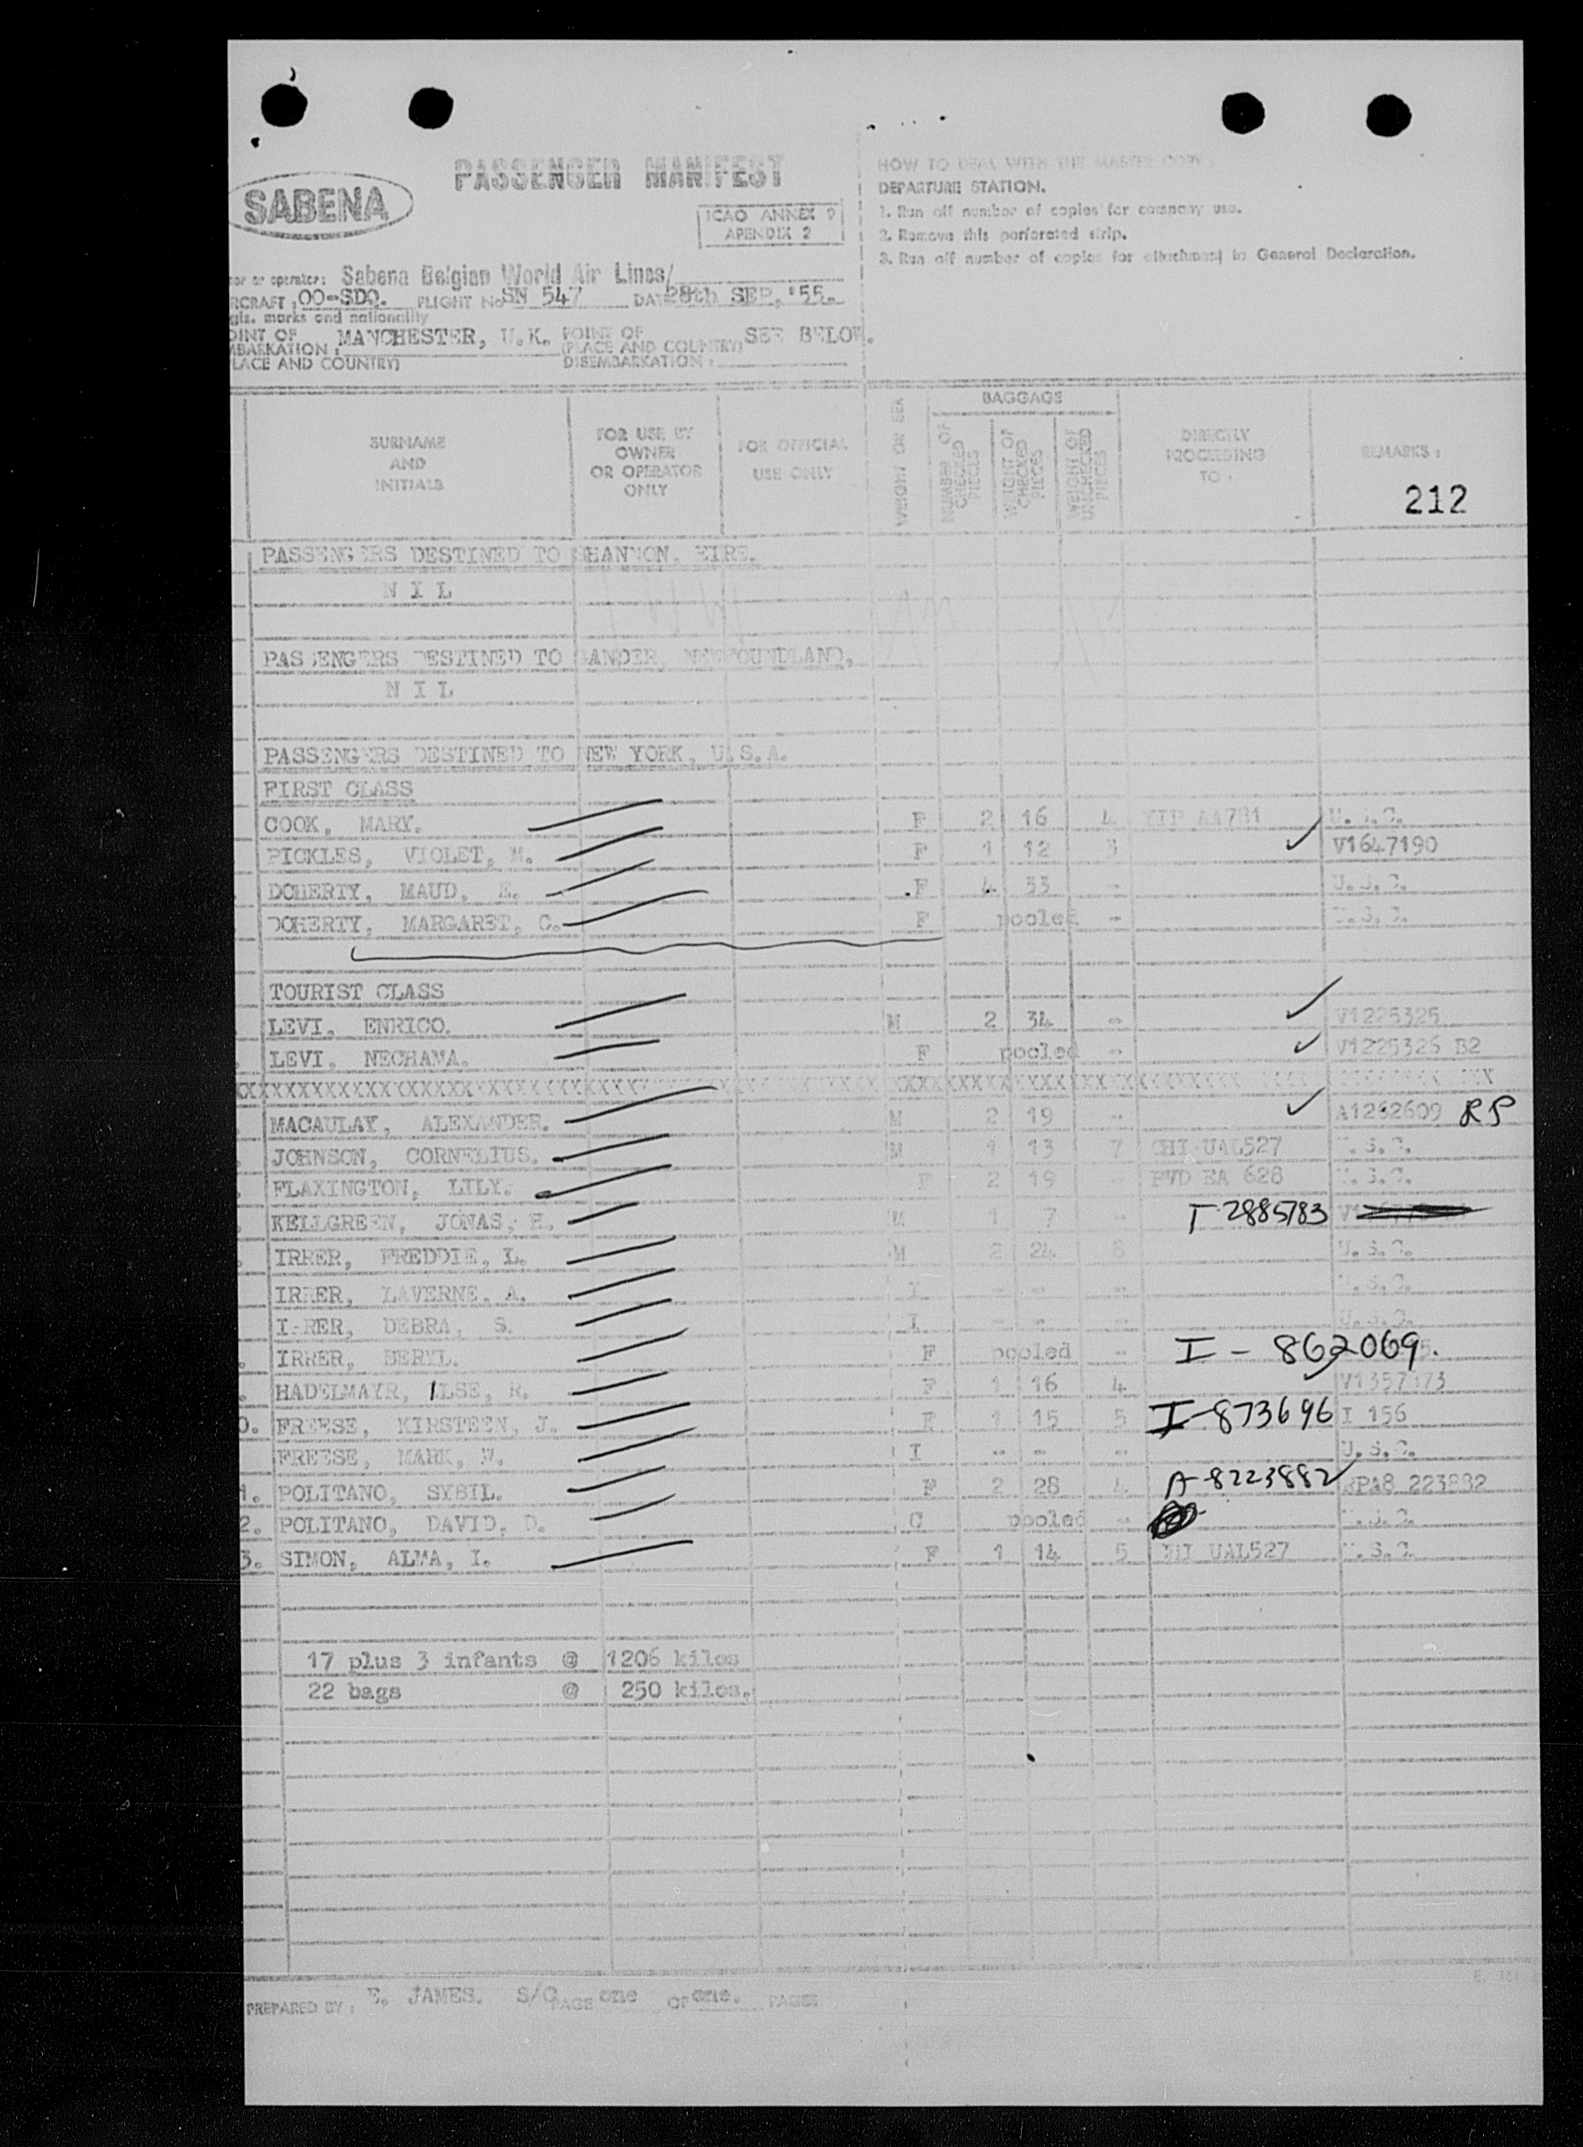 PASSENGER MANIFEST
SABENA
ICAO ANNEX 9
APENDIX 2
HOW TO DEAL WITH THE MASTER COPY
DEPARTURE STATION.
1. Run off number of copies for company use.
2. Remove this perforated strip.
3. Run off number of copies for attachment to General Declaration.
or operator: Sabena Belgian World Air Lines/
RCRAFT: OO-SDQ. FLIGHT No SN 547 DATE 28th SEP. '55.
gis. marks and nationality
OINT OF MBARKATION: MANCHESTER, U.K. POINT OF (PLACE AND COUNTRY) SEE BELOW.
LACE AND COUNTRY) DISEMBARKATION:
SURNAME AND INITIALS
FOR USE BY OWNER OR OPERATOR ONLY
FOR OFFICIAL USE ONLY
WEIGHT OR SEX
BAGGAGE
NUMBER OF CHECKED PIECES
WEIGHT OF CHECKED PIECES
WEIGHT OF UNCHECKED PIECES
DIRECTLY PROCEEDING TO:
REMARKS:
212
PASSENGERS DESTINED TO SHANNON. EIRE.
N I L
PASSENGERS DESTINED TO GANDER, NEWFOUNDLAND,
N I L
PASSENGERS DESTINED TO NEW YORK, U.S.A.
FIRST CLASS
COOK, MARY. F 2 16 4 AA781 U.S.C.
PICKLES, VIOLET, M. F 1 12 3 V1647190
DOHERTY, MAUD, E. F 4 53 - U.S.C.
DOHERTY, MARGARET, C. F pooled - U.S.C.
TOURIST CLASS
LEVI, ENRICO. M 2 34 - V1225325
LEVI, NECHAMA. F pooled - V1225326 B2
MACAULAY, ALEXANDER. M 2 19 - A1262609 RP
JOHNSON, CORNELIUS. M 1 13 7 CHI UAL527 U.S.C.
FLAXINGTON, LILY. F 2 19 - PVD EA 628 U.S.C.
KELLGREEN, JONAS, H. M 1 7 - T-2885783
IRRER, FREDDIE, L. M 2 24 8 U.S.C.
IRRER, LAVERNE, A. I - - - U.S.C.
IRRER, DEBRA, S. I - - - U.S.C.
IRRER, BERYL. F pooled - I - 862069.
HADELMAYR, ILSE, R. F 1 16 4
0. FREESE, KIRSTEEN, J. F 1 15 5 I-873696 I 156
FREESE, MARK, W. I - - - U.S.C.
1. POLITANO, SYBIL. F 2 28 4 A-8223882 RPA8 223882
2. POLITANO, DAVID, D. C pooled - U.S.C.
3. SIMON, ALMA, I. F 1 14 5 CHI UAL527 U.S.C.
17 plus 3 infants @ 1206 kilos
22 bags @ 250 kilos.
PREPARED BY: E. JAMES. S/C PAGE one OF one. PAGES